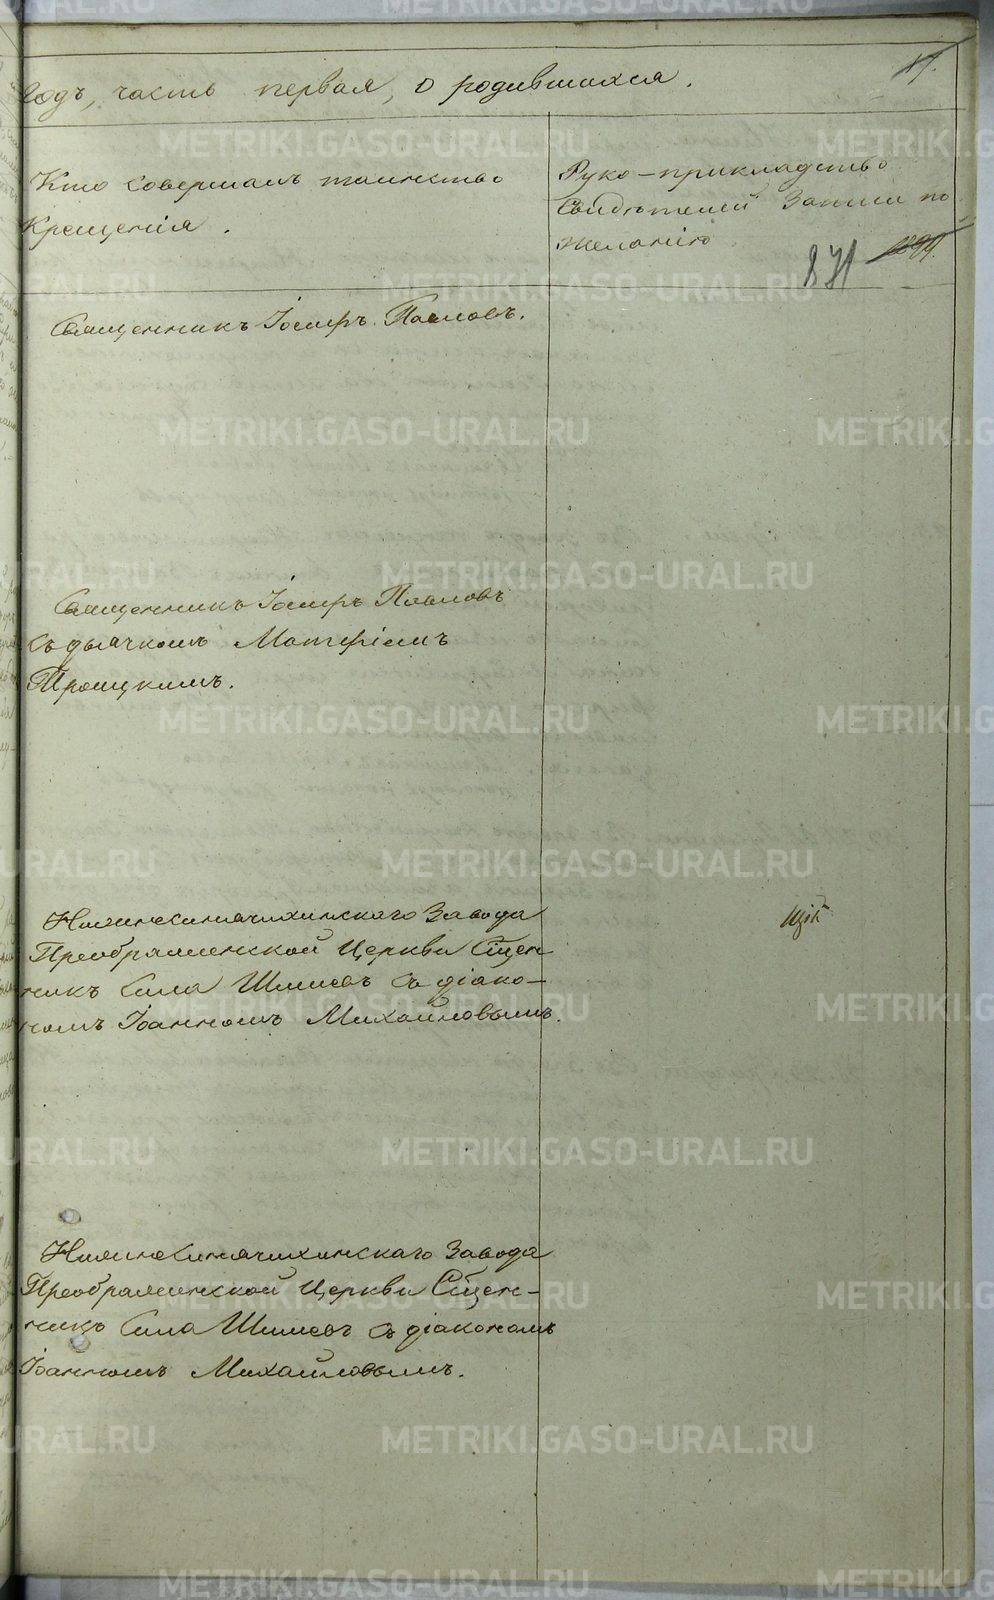 17.
годъ, часть первая, о родившихся.
Кто совершалъ таинство
Крещенія.
Руко-прикладство
Свидѣтелей Записи по
желанію
871
Священникъ Іосифъ Павловъ.
Священникъ Іосифъ Павловъ
съ дьячкомъ Матфіемъ
Троицкимъ.
Нижнесинячихинскаго Завода
Преображенской Церкви Сщен
никъ Сила Шишевъ съ діако-
номъ Іоанномъ Михайловымъ.
Нижнесинячихинскаго Завода
Преображенской Церкви Сщен-
никъ Сила Шишевъ съ діакономъ
Іоанномъ Михайловымъ.
METRIKI.GASO-URAL.RU